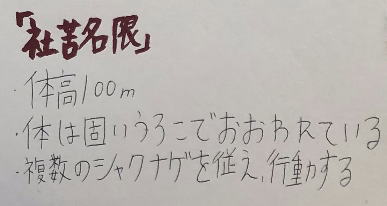 「社苦名限」
・体高100m
・体は固いうろこでおおわれている
・複数のシャクナゲを従え、行動する